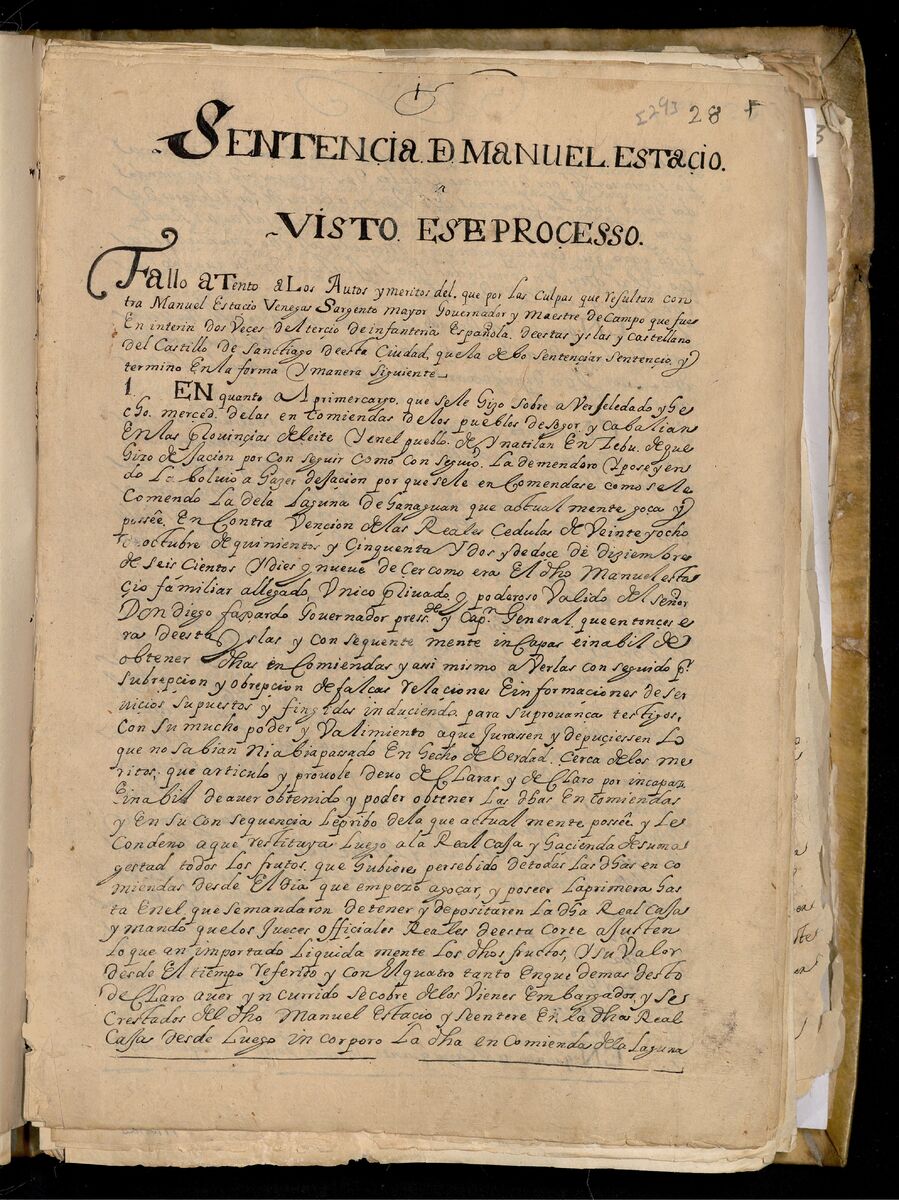 5293 28
SENTENCIA. D MANUEL. ESTACIO.
VISTO. ESTE PROCESSO.
Fallo aTento aLos Autos y meritos del. que por Las Culpas que resultan con
tra Manuel Estacio Venegas Sargento mayor Governador y Maestre de Campo que fue
En interin Dos Veçes del terçio de infanteria Española. de estas yslas y Castellano
del Castillo de Sanctiago de esta Ciudad, que la debo sentençiar sentençio, y
termino En la forma Y manera siguiente
1. EN quanto a Al primer cargo, que se le hizo sobre aVersele dado y he
cho. merced. de las en comiendas de los pueblos de sogor. y Cabalian
En las Provinçias de leite Y en el pueblo. de Ynatilan En Zebu. de que
hizo de jacion por con seguir como con seguio, La de mendoro Y poseyen
do La boluio a hazer dejacion por que se le en Comendase como se le
Comendo La de la Laguna De hanaguan que actual mente goça Y
possêe, En Contra Vencion de las Reales Cedulas de Veinte yocho
octubre de quinientos y Cinquenta Y dos y de doce de diziembre
de seis Cientos Y dies y nueve de Cer como era El dho Manuel esta
çio familiar allegado, Unico Privado y poderoso Valido del señor
Don diego faxardo Governador press.de y Cap.n General que entonces e
ra de esta Yslas y con sequente mente incapas e inabil de
obtener dhas en Comiendas y asi mismo aVerlas con seguido p.r
subrepcion y obrepcion de falças relaciones E informaciones de ser
vicios, supuestos y fingidos induciendo para su provança testigos,
Con su mucho poder y Valimiento a que Jurassen y depuçiessen Lo
que no sabian Ni abia passado En hecho de Verdad. Cerca de los me
ritos, que articulo y provole devo de CLarar y de CLaro por incapaz
E inabil de aver obtenido y poder obtener Las dhas En Comiendas
y En su Con sequencia Le pribo de la que actual mente possêe y Le
Condeno a que restituya Luego a la Real Cassa y hacienda de su ma
gestad todos Los frutos, que hubiere persebido de todas Las dhas en co
miendas desde El dia que empezo agoçar, y poseer La primera has
ta En el que se mandaron detener y depositar en La dha Real Cassa
y mando que los Jueçes officiales Reales de esta Corte ajusten
Lo que an importado Liquida mente Los dhos fructos, Y su Valor
desde El tiempo referido y con El quatro tanto En que demas desto
de CLaro aver yn currido se cobre de los Vienes Embargados, y se
crestados del dho Manuel Estacio y se entere En la dha Real
Cassa desde Luego in corporo La dha en Comienda de la Laguna